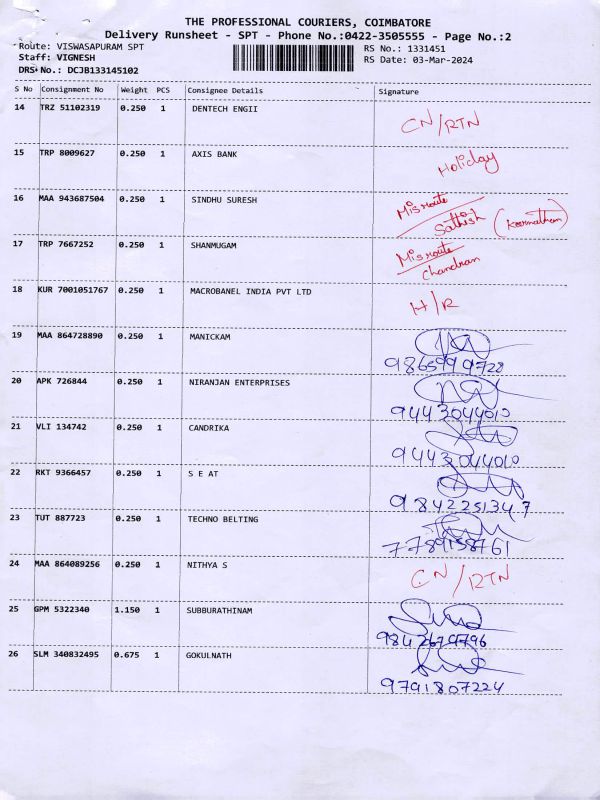 THE PROFESSIONAL COURIERS, COIMBATORE
Delivery Runsheet - SPT - Phone No.:0422-3505555 - Page No.:2
Route: VISWASAPURAM SPT RS No.: 1331451
Staff: VIGNESH RS Date: 03-Mar-2024
DRS No.: DCJB133145102
S No Consignment No Weight PCS Consignee Details Signature
14 TRZ 51102319 0.250 1 DENTECH ENGII CN/RTN
15 TRP 8009627 0.250 1 AXIS BANK Holiday
16 MAA 943687504 0.250 1 SINDHU SURESH Misroute
Sathish
17 TRP 7667252 0.250 1 SHANMUGAM Misroute
Chandran
18 KUR 7001051767 0.250 1 MACROBANEL INDIA PVT LTD H/R
19 MAA 864728890 0.250 1 MANICKAM
9865999728
20 APK 726844 0.250 1 NIRANJAN ENTERPRISES
9443044010
21 VLI 134742 0.250 1 CANDRIKA
9443044010
22 RKT 9366457 0.250 1 S E AT
9842251347
23 TUT 887723 0.250 1 TECHNO BELTING
7789158761
24 MAA 864089256 0.250 1 NITHYA S CN/RTN
25 GPM 5322340 1.150 1 SUBBURATHINAM
9842679796
26 SLM 340832495 0.675 1 GOKULNATH
9791807224